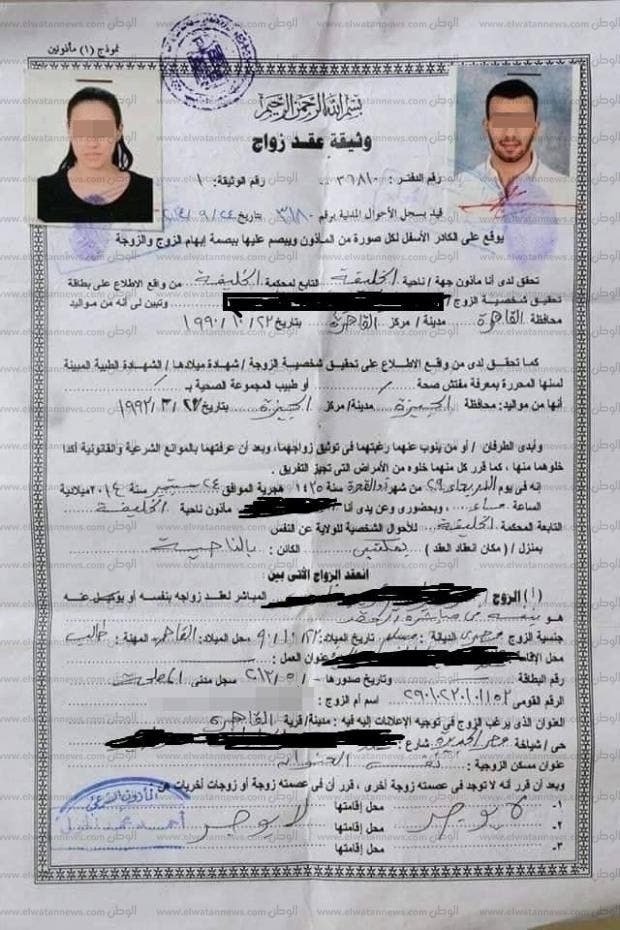 نموذج (١) مأذونين
بسم الله الرحمن الرحيم
وثيقة عقد زواج
رقم الدفتر : ٣٦٨١٠٠ رقم الوثيقة: ١
قيد بسجل الأحوال المدنية برقم ٣١٨٠ بتاريخ ٢٠١٤/٩/٢٤
يوقع على الكادر الأسفل لكل صورة من المأذون ويبصم عليها ببصمة إبهام الزوج والزوجة
تحقق لدى أنا مأذون جهة / ناحية الخليفة التابع لمحكمة الخليفة من واقع الاطلاع على بطاقة
تحقيق شخصية الزوج / وتبين لى أنه من مواليد
محافظة القاهرة مدينة / مركز القاهرة بتاريخ ١٩٩٠/١٠/٢٢
كما تحقق لدى من واقع الاطلاع على تحقيق شخصية الزوجة / شهادة ميلادها / الشهادة الطبية المبينة
لسنها المحررة بمعرفة مفتش صحة أو طبيب المجموعة الصحية بـ
أنها من مواليد: محافظة الجيزة مدينة/ مركز الجيزة بتاريخ ١٩٩٢/٣/٢٢
وأبدى الطرفان / أو من ينوب عنهما رغبتهما فى توثيق زواجهما، وبعد أن عرفتهما بالموانع الشرعية والقانونية أكدا
خلوهما منها ، كما قرر كل منهما خلوه من الأمراض التى تجيز التفريق .
إنه فى يوم الأربعاء ٢٩ من شهر ذو القعدة سنة ١٤٣٥ هجرية الموافق ٢٤ سبتمبر سنة ٢٠١٤ ميلادية
الساعة مساء وبحضورى وعن يدى أنا مأذون ناحية الخليفة
التابعة لمحكمة الخليفة للأحوال الشخصية للولاية عن النفس
بمنزل / (مكان انعقاد العقد ) بمكتبى الكائن : بالناحية
انعقد الزواج الآتى بين:
(أ) الزوج المباشر لعقد زواجه بنفسه أو بوكيل عنه
هو بنفسه
جنسية الزوج مصرى الديانة: مسلم تاريخ الميلاد: ٩٠/١٠/٢٢ محل الميلاد: القاهرة المهنة : طالب
محل الإقامة عنوان العمل :
رقم البطاقة وتاريخ صدورها سجل مدنى
الرقم القومى اسم أم الزوج :
العنوان الذى يرغب الزوج فى توجيه الإعلانات إليه فيه : مدينة/ قرية القاهرة
حى / شياخة مصر الجديدة شارع :
عنوان مسكن الزوجية : نفس العنوان
وبعد أن قرر أنه لا توجد فى عصمته زوجة أخرى ، قرر أن فى عصمته زوجة أو زوجات أخريات هن
١- لا يوجد محل إقامتها لا يوجد
٢- محل إقامتها
٣- محل إقامتها
المأذون الشرعى
الوطن www.elwatannews.com